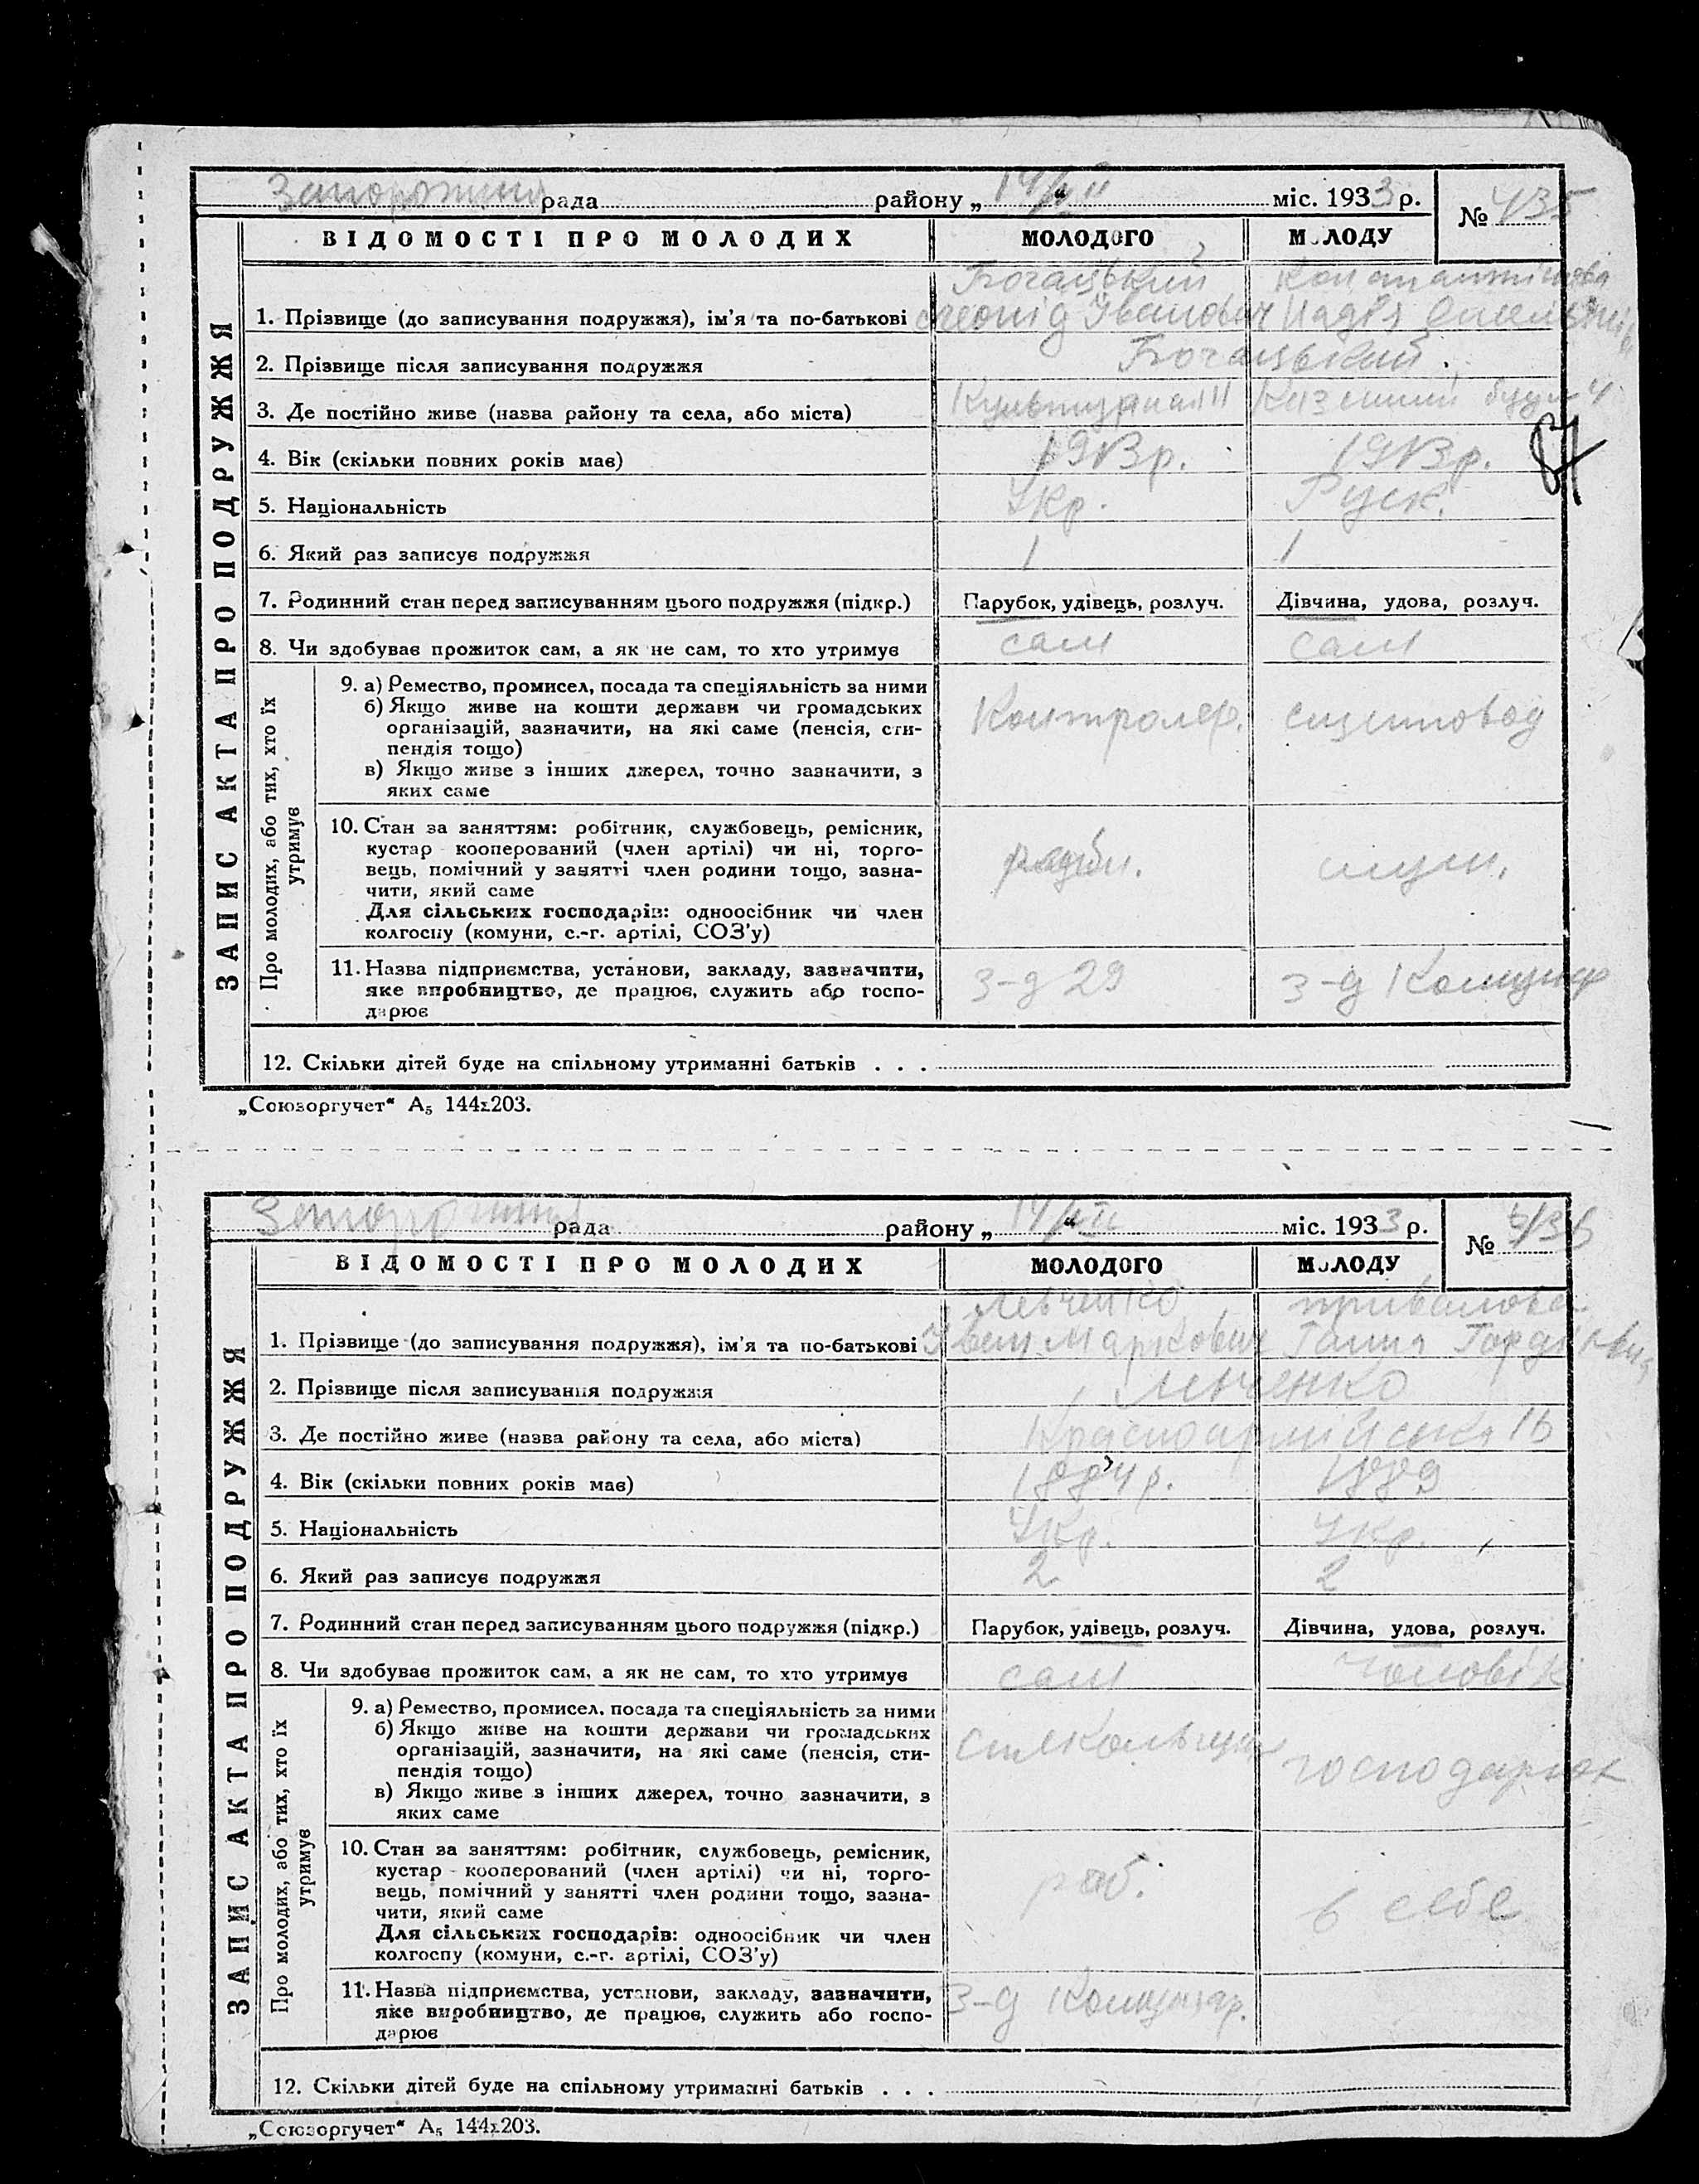 Запорожжя рада району „ 14/VII “ міс. 1933 р. № 435
ЗАПИС АКТА ПРО ПОДРУЖЖЯ
ВІДОМОСТІ ПРО МОЛОДИХ МОЛОДОГО МОЛОДУ
1. Прізвище (до записування подружжя), ім'я та по-батькові Леонід Іванович Надія
2. Прізвище після записування подружжя
3. Де постійно живе (назва району та села, або міста)
4. Вік (скільки повних років має) 1913 р. 1913 р.
5. Національність Укр. Руск.
6. Який раз записує подружжя 1 1
7. Родинний стан перед записуванням цього подружжя (підкр.) Парубок, удівець, розлуч. Дівчина, удова, розлуч.
8. Чи здобуває прожиток сам, а як не сам, то хто утримує сам сам
Про молодих, або тих, хто їх утримує
9. а) Ремество, промисел, посада та спеціяльність за ними
б) Якщо живе на кошти держави чи громадських
організацій, зазначити, на які саме (пенсія, сти-
пендія тощо)
в) Якщо живе з інших джерел, точно зазначити, з
яких саме
Контролер.
10. Стан за заняттям: робітник, службовець, ремісник,
кустар кооперований (член артілі) чи ні, торго-
вець, помічний у занятті член родини тощо, зазна-
чити, який саме
Для сільських господарів: одноосібник чи член
колгоспу (комуни, с.-г. артілі, СОЗ'у)
11. Назва підприємства, установи, закладу, зазначити,
яке виробництво, де працює, служить або госпо-
дарює
з-д 29 з-д Комунар
12. Скільки дітей буде на спільному утриманні батьків . . .
„Союзоргучет“ А₅ 144x203.
Запорожжя рада району „ 14/VII “ міс. 1933 р. № 436
ЗАПИС АКТА ПРО ПОДРУЖЖЯ
ВІДОМОСТІ ПРО МОЛОДИХ МОЛОДОГО МОЛОДУ
Левченко Привалова
1. Прізвище (до записування подружжя), ім'я та по-батькові Іван Маркович Ганна Гордіївна
2. Прізвище після записування подружжя Левченко
3. Де постійно живе (назва району та села, або міста) Красноармійська 16
4. Вік (скільки повних років має) 1884 р. 1889
5. Національність Укр. Укр.
6. Який раз записує подружжя 2 2
7. Родинний стан перед записуванням цього подружжя (підкр.) Парубок, удівець, розлуч. Дівчина, удова, розлуч.
8. Чи здобуває прожиток сам, а як не сам, то хто утримує сам чоловік
Про молодих, або тих, хто їх утримує
9. а) Ремество, промисел, посада та спеціяльність за ними
б) Якщо живе на кошти держави чи громадських
організацій, зазначити, на які саме (пенсія, сти-
пендія тощо)
в) Якщо живе з інших джерел, точно зазначити, з
яких саме
10. Стан за заняттям: робітник, службовець, ремісник,
кустар кооперований (член артілі) чи ні, торго-
вець, помічний у занятті член родини тощо, зазна-
чити, який саме
Для сільських господарів: одноосібник чи член
колгоспу (комуни, с.-г. артілі, СОЗ'у)
роб. в себе
11. Назва підприємства, установи, закладу, зазначити,
яке виробництво, де працює, служить або госпо-
дарює
з-д Комунар.
12. Скільки дітей буде на спільному утриманні батьків . . .
„Союзоргучет“ А₅ 144x203.